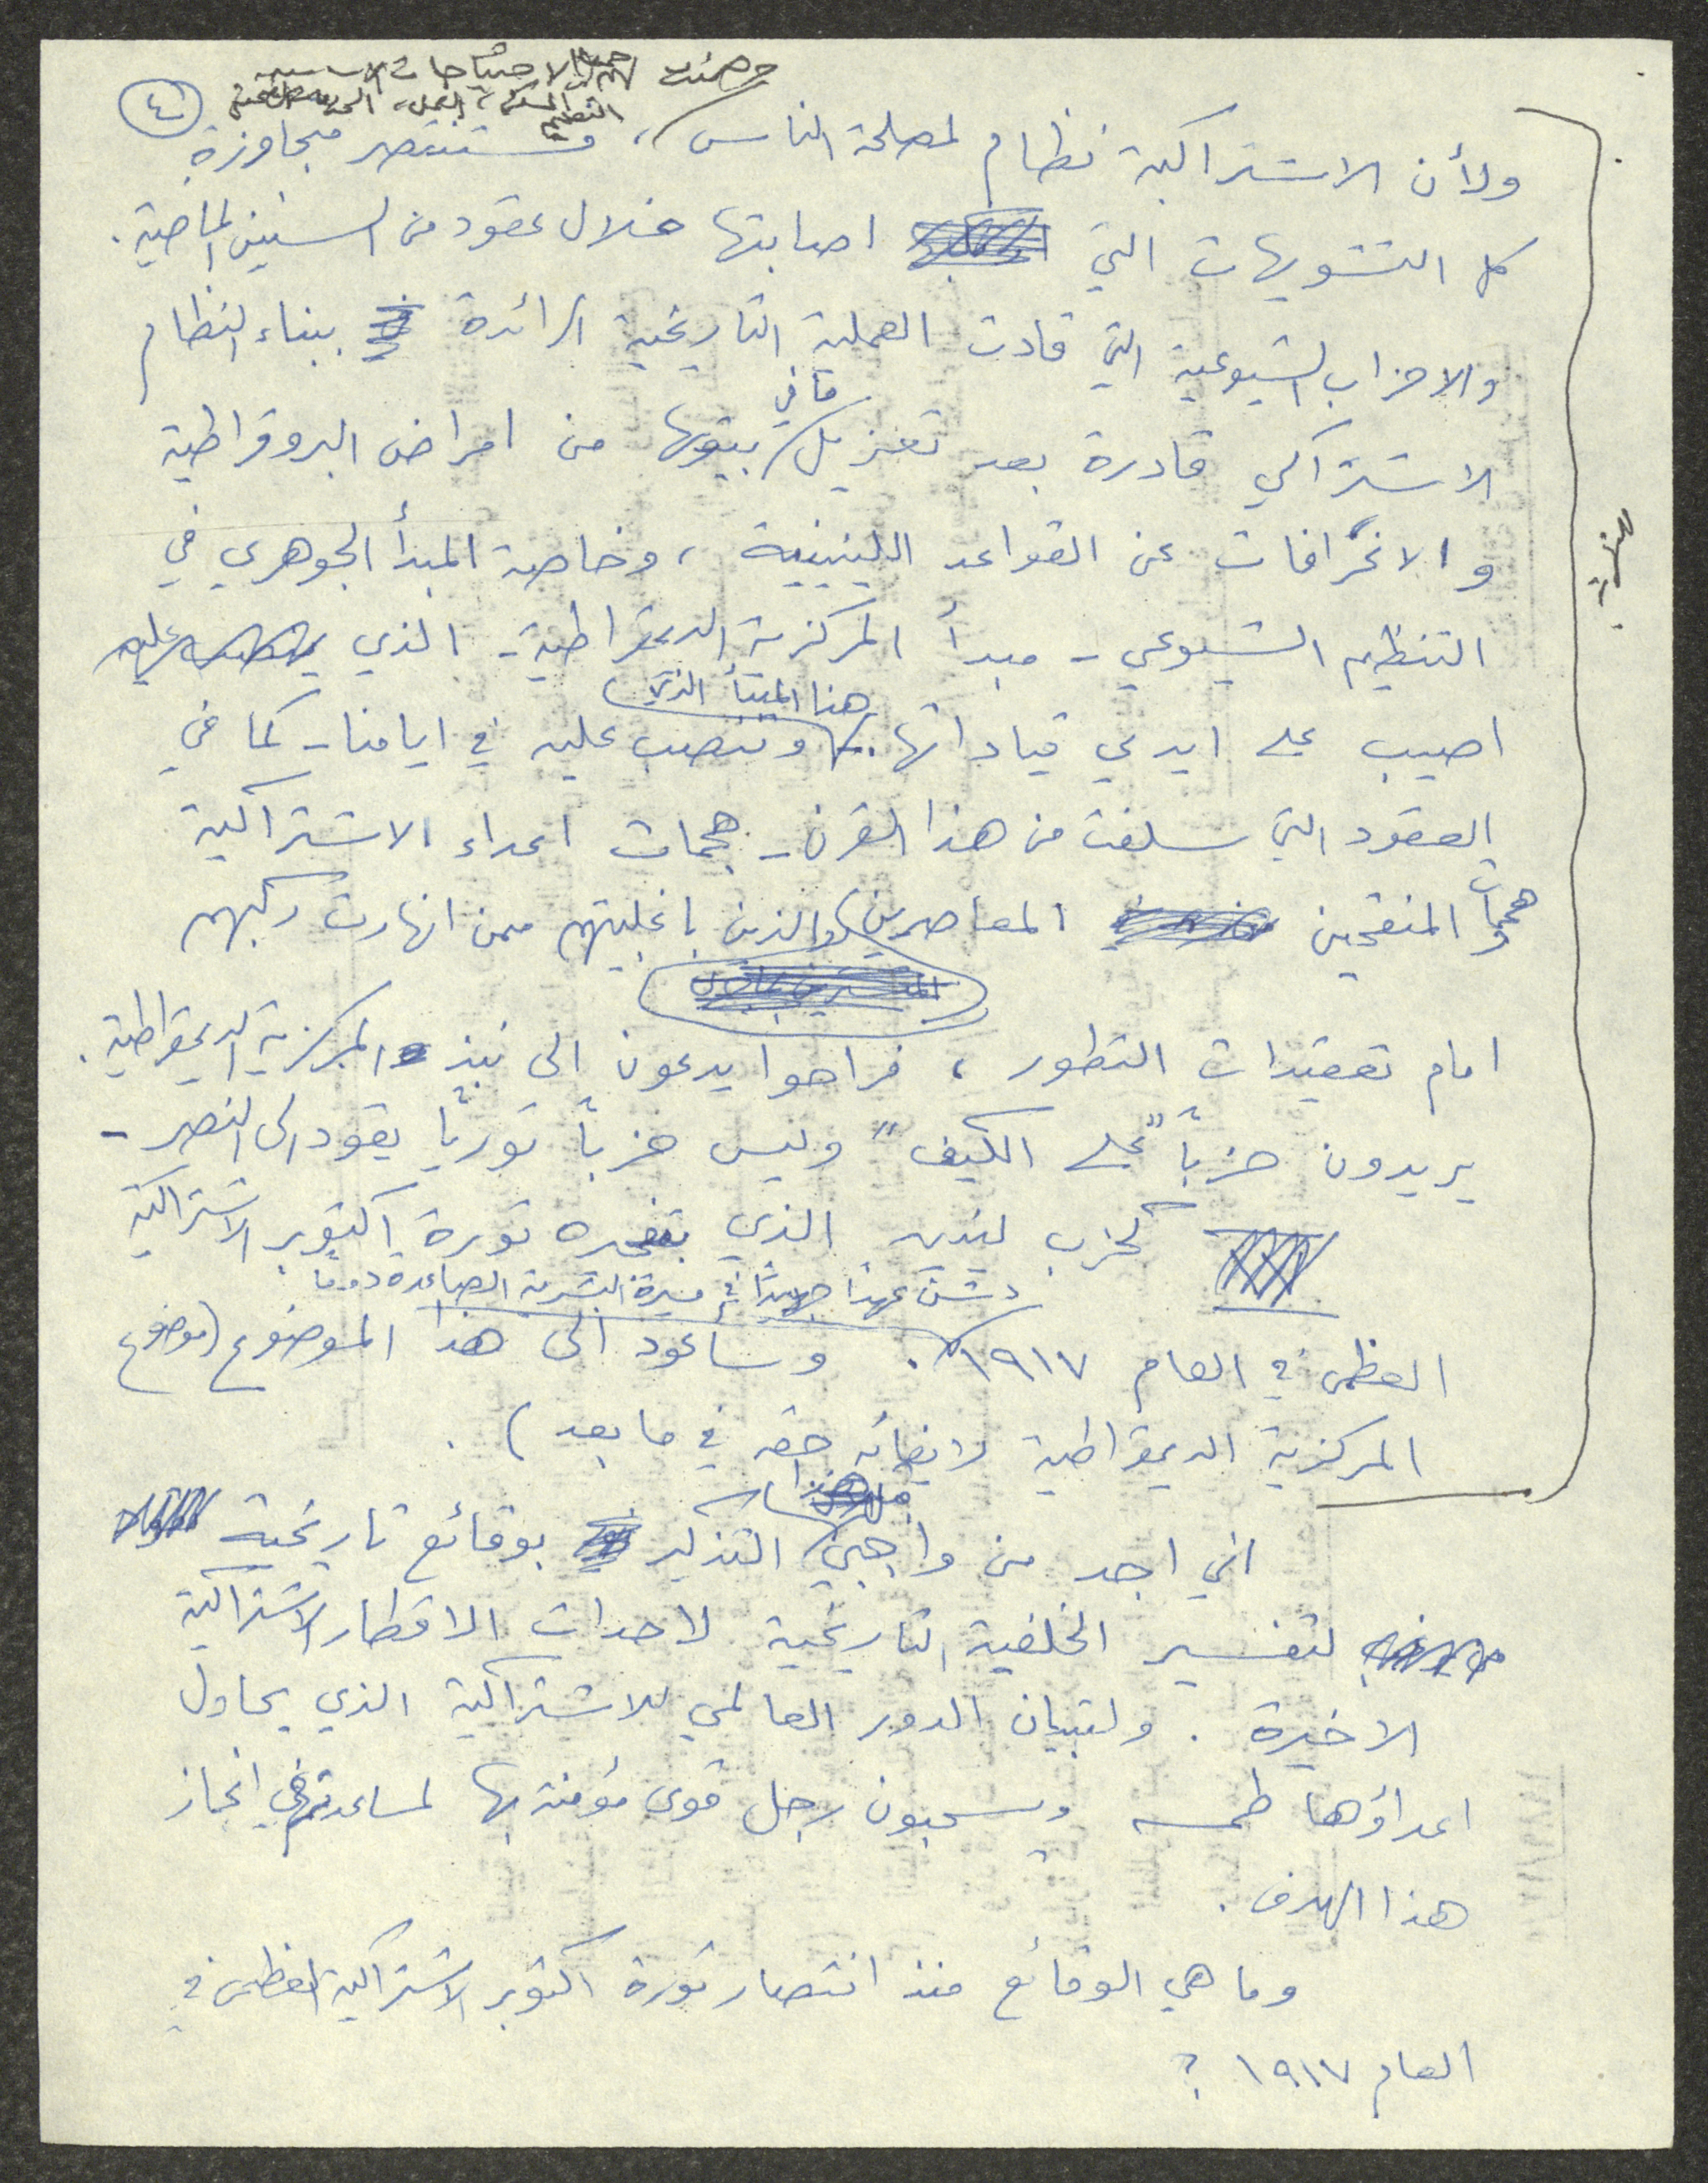 وضمنت لهم الاحتياجات الاساسية
التعليم، المسكن، العمل،
٤
ولأن الاشتراكية نظام لمصلحة الناس، وستنتصر متجاوزة
كل التشويهات التي اصابتها خلال عقود من السنين الماضية.
والاحزاب الشيوعية التي قادت العملية التاريخية الرائدة ببناء النظام
الاشتراكي قادرة بعد تعزيل ما في بيتها من امراض البروقراطية
والانحرافات عن القواعد اللينينية، وخاصة المبدأ الجوهري في
التنظيم الشيوعي - مبدأ المركزية الديمقراطية - الذي
اصيب على ايدي قياداتها. هذا المبدأ الذي وتنصب عليه في ايامنا - كما في
العقود التي سلفت من هذا القرن - هجمات اعداء الاشتراكية
وهجمات المنقحين المعاصرين، والذين باغلبيتهم ممن انهارت ركبهم
امام تعقيدات التطور، فراحوا يدعون الى نبذ المركزية الديمقراطية.
يريدون حزباً "على الكيف" وليس حزباً ثورياً يقود الى النصر -
كحزب لينين الذي بتفجيره ثورة اكتوبر الاشتراكية
دشن عهداً جديداً في مسيرة البشرية الصاعدة دوماً
العظمى في العام ١٩١٧. وسأعود الى هذا الموضوع (موضوع
المركزية الديمقراطية لايفائه حقه في ما بعد).
اني اجد من واجبي التذكير بوقائع تاريخية
لتفسير الخلفية التاريخية لاحداث الاقطار الاشتراكية
الاخيرة. ولتبيان الدور العالمي للاشتراكية الذي يحاول
اعداؤها طمسه ويسحبون رجل قوى مؤمنة بها لمساعدتهم في انجاز
هذا الهدف.
وما هي الوقائع منذ انتصار ثورة اكتوبر الاشتراكية العظمى في
العام ١٩١٧؟